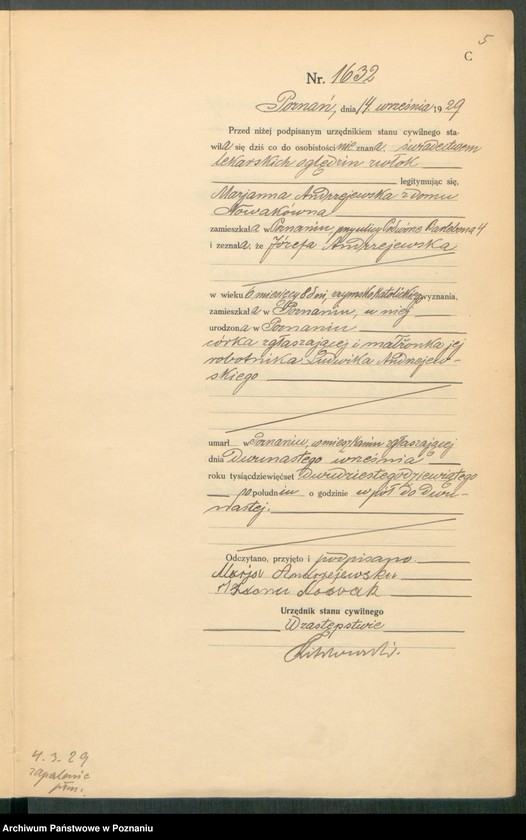 5
C
Nr. 1632
Poznań, dnia 14. września 1929
Przed niżej podpisanym urzędnikiem stanu cywilnego sta-
wiła się dziś co do osobistości nie znana. świadectwem
lekarskich oględzin zwłok
legitymując się,
Marjanna Andrzejewska z domu
Nowakówna
zamieszkała w Poznaniu, przy ulicy
i zeznała, że Józefa Andrzejewska
w wieku 6 miesięcy 8 dni, rzymsko katolickiego wyznania,
zamieszkała w Poznaniu, u niej
urodzona w Poznaniu
córka zgłaszającej i małżonka jej
robotnika Ludwika Andrzejew-
skiego
umarł w Poznaniu, w mieszkaniu zgłaszającej
dnia Dwunastego września
roku tysiącdziewięćset dwudziestego dziewiątego
po południu o godzinie w pół do dwu-
nastej.
Odczytano, przyjęto i podpisano
Marja Andrzejewska
z domu Nowak
Urzędnik stanu cywilnego
W zastępstwie
4.3.29
zapalenie
płuc.
Archiwum Państwowe w Poznaniu